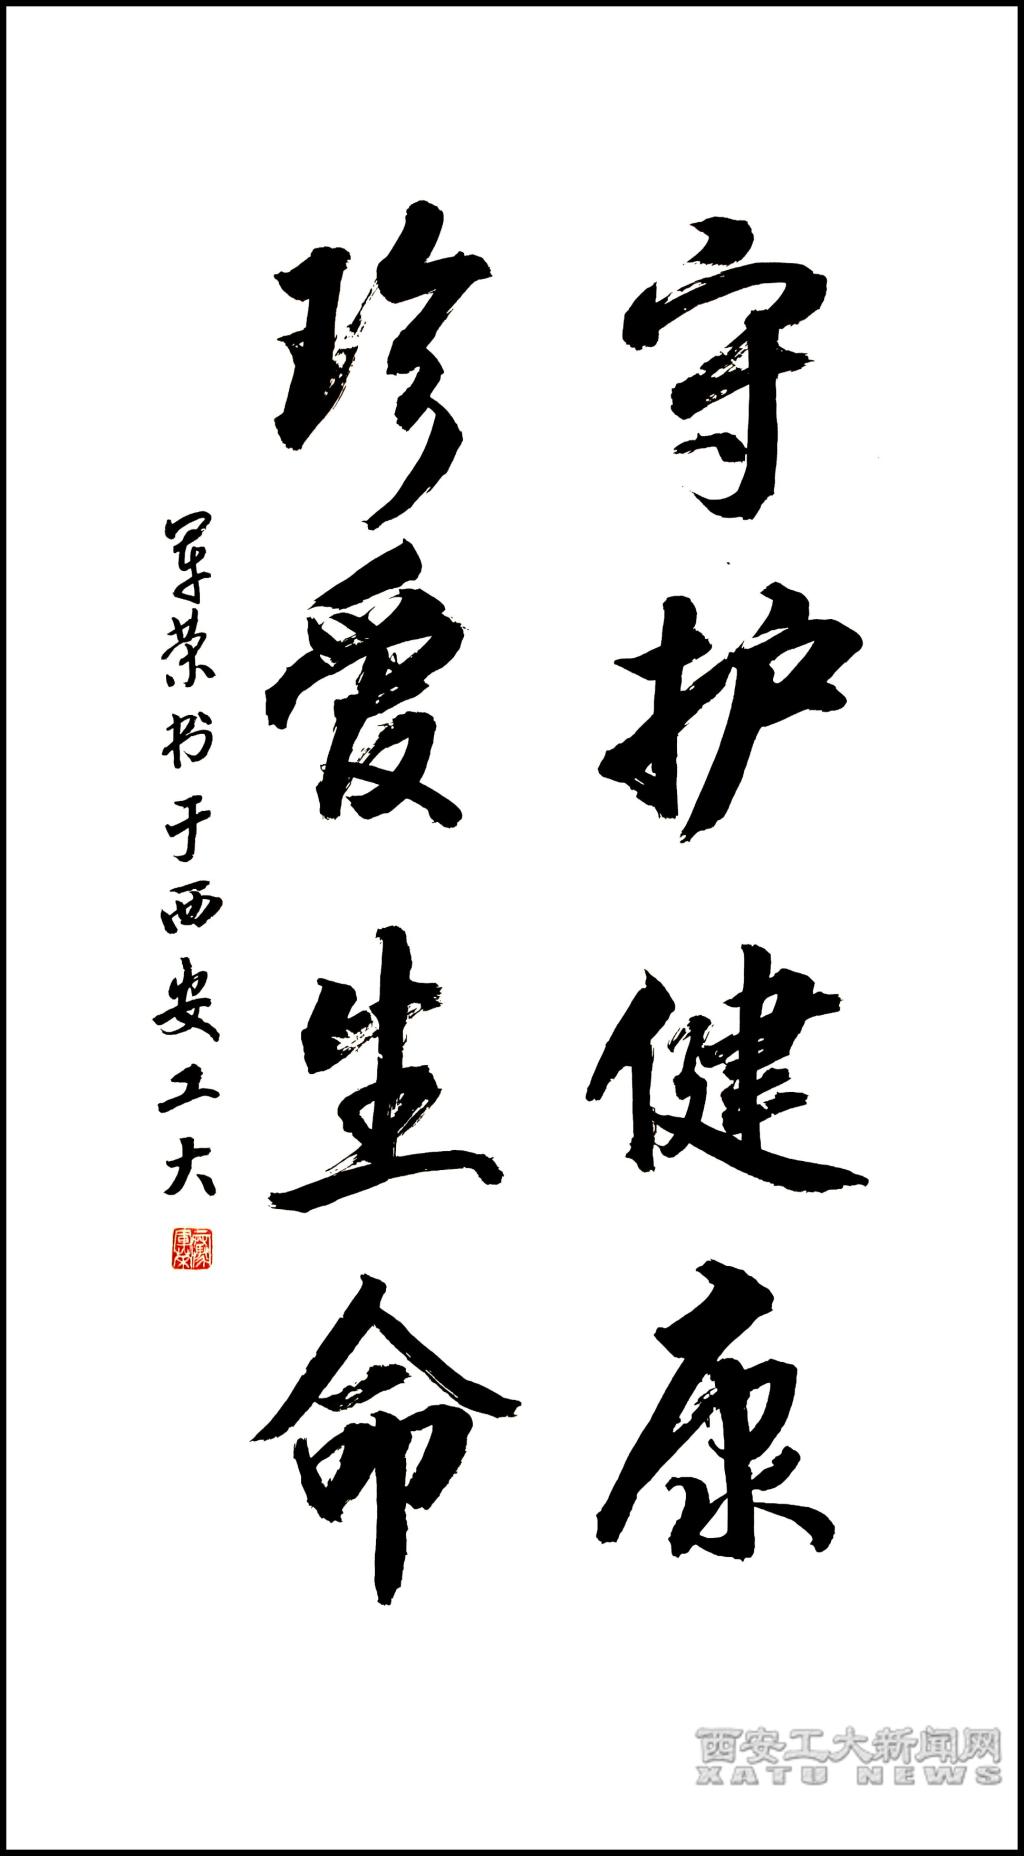 守护健康
珍爱生命
军荣书于西安工大
西安工大新闻网
XATU NEWS